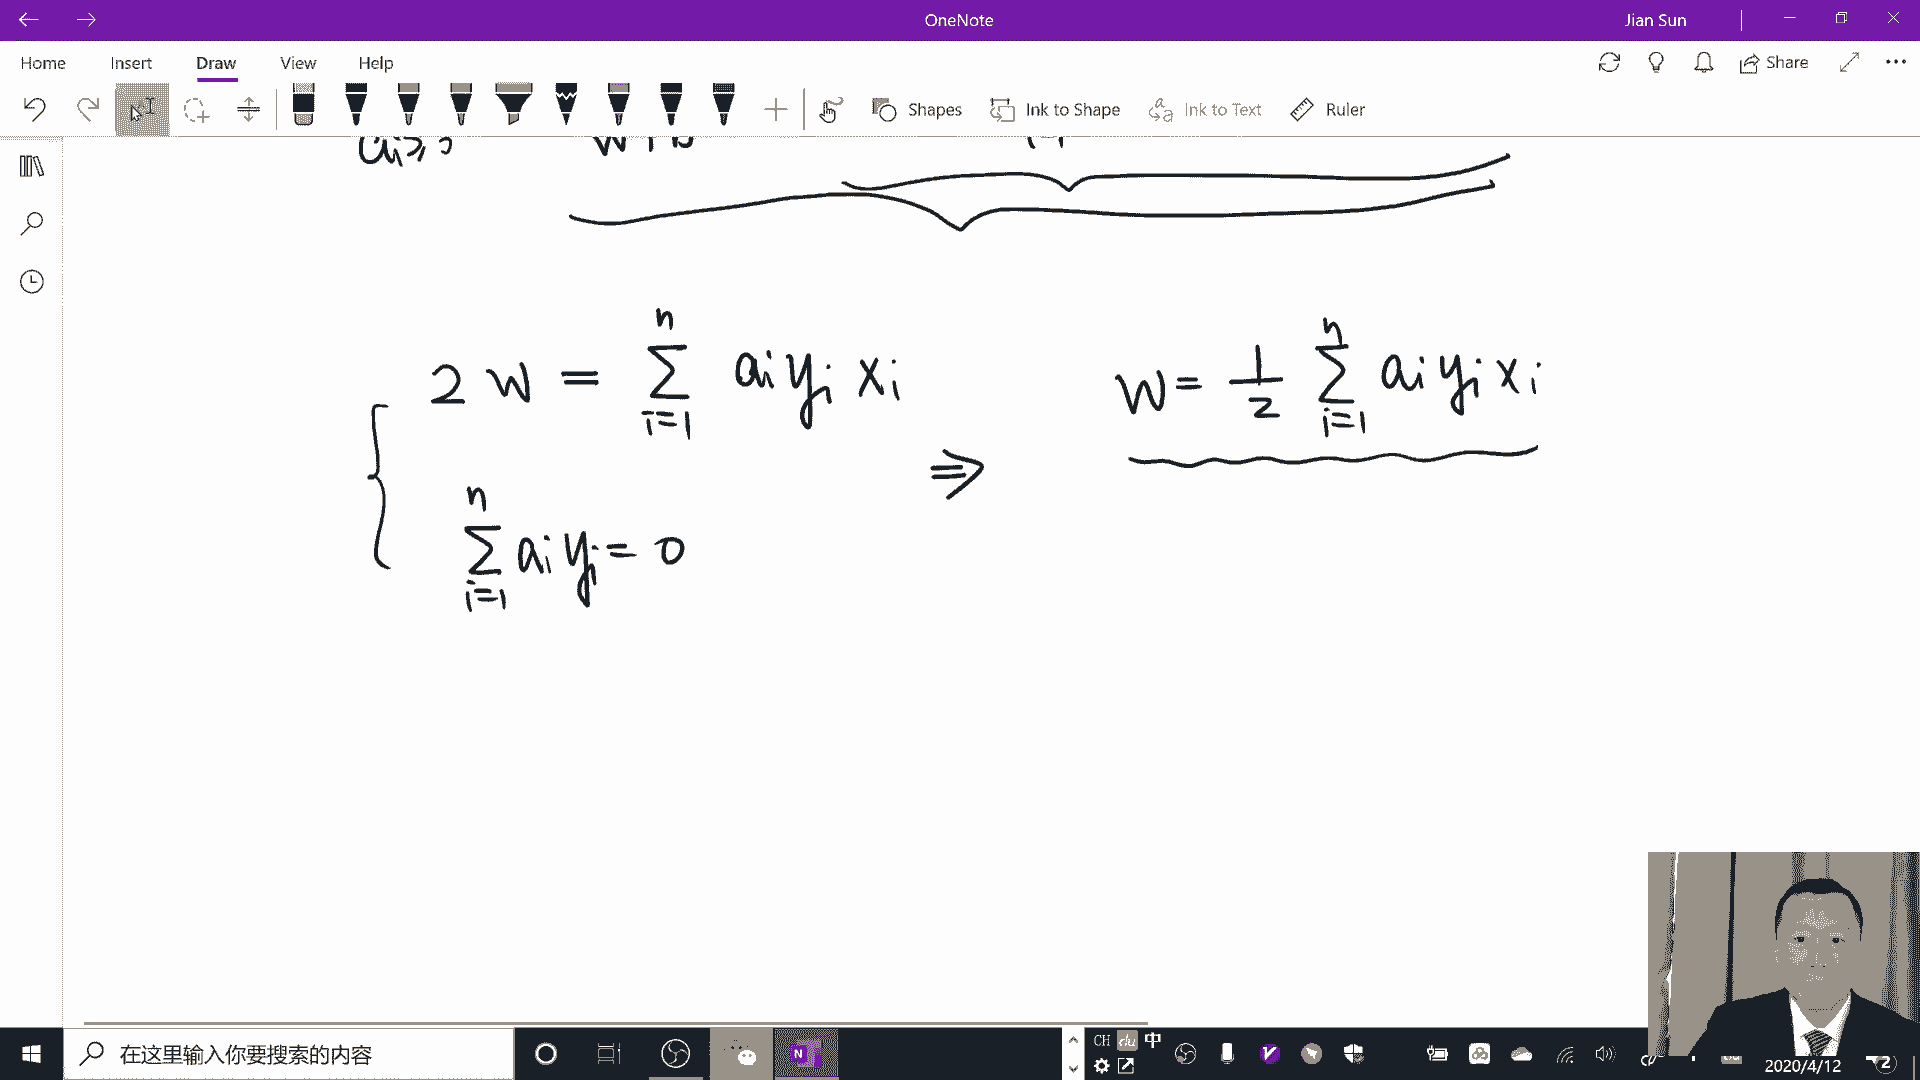 OneNote
Jian Sun
Home Insert Draw View Help
Share
Shapes Ink to Shape Ink to Text Ruler
2 w = \sum_{i=1}^{n} a_i y_i x_i
w = \frac{1}{2} \sum_{i=1}^{n} a_i y_i x_i
⇒
\sum_{i=1}^{n} a_i y_i = 0
在这里输入你要搜索的内容
CH du 中
2020/4/12
2